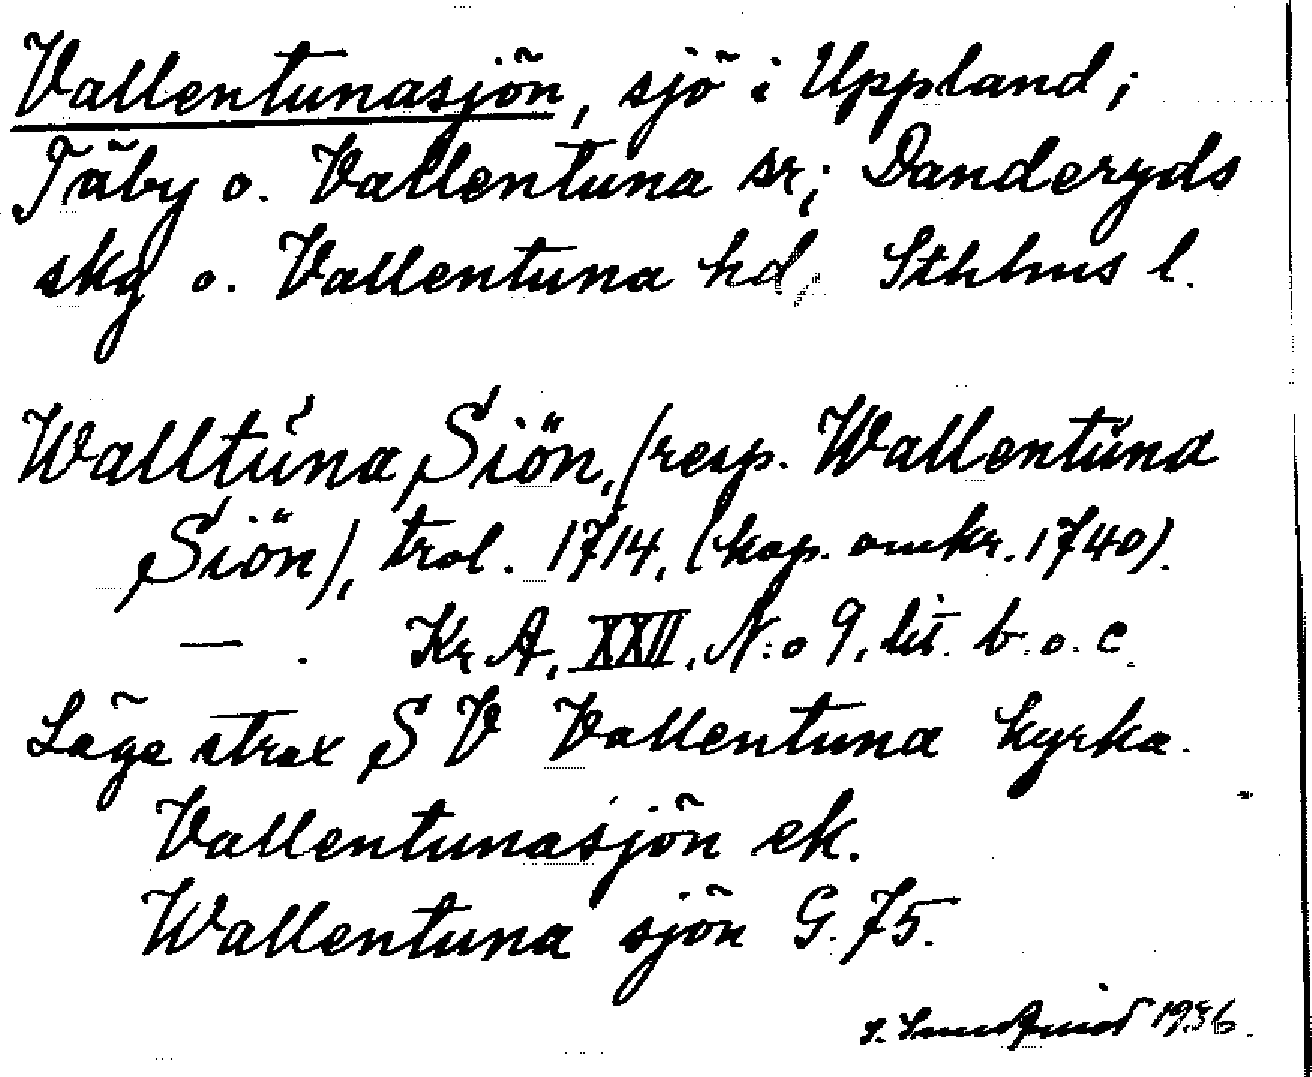 Vallentunasjön, sjö i Uppland;
Täby o. Vallentuna sr; Danderyds
skg o. Vallentuna hd, Sthlms l.
Walltuna Siön, (resp. Wallentuna
Siön), trol. 1714, (kop. omkr. 1740).
— . Kr A, XXII, N:o 9, lit. b. o. c.
Läge strax S V Vallentuna kyrka.
Vallentunasjön ek.
Wallentuna sjön G. 75.
1936.